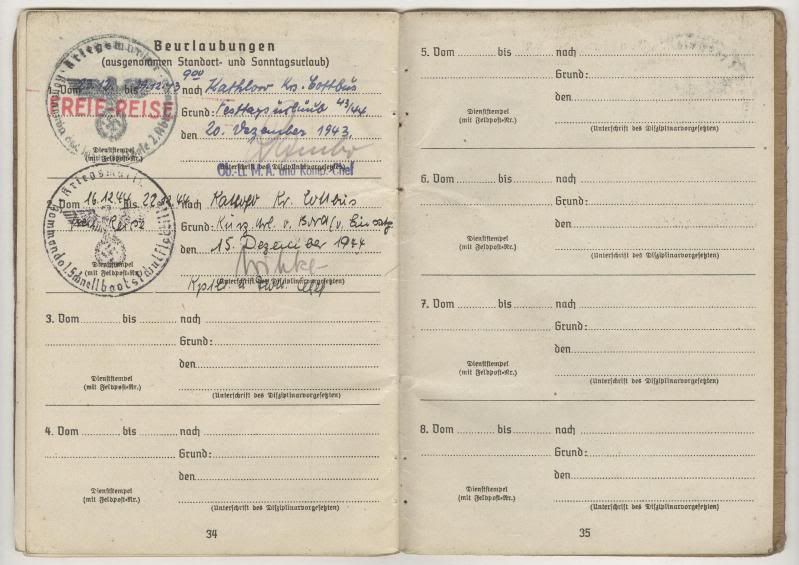 Beurlaubungen
(ausgenommen Standort- und Sonntagsurlaub)
1. Vom bis nach Kathlow Kr. Cottbus
FREIE REISE
Grund: Festtagsurlaub 43/44
den 20. Dezember 1943.
Dienststempel
(mit Feldpost-Nr.)
(Unterschrift des Disziplinarvorgesetzten)
Ob.-Lt. M. A. und Komp.-Chef
Kriegsmarine
2. Vom 16.12.44 bis 22.12.44 nach Kathlow Kr. Cottbus
Grund: Kurz. Url. v.
den 15. Dezember 1944
Dienststempel
(mit Feldpost-Nr.)
(Unterschrift des Disziplinarvorgesetzten)
Kptlt. u.
3. Vom bis nach
Grund:
den
Dienststempel
(mit Feldpost-Nr.)
(Unterschrift des Disziplinarvorgesetzten)
4. Vom bis nach
Grund:
den
Dienststempel
(mit Feldpost-Nr.)
(Unterschrift des Disziplinarvorgesetzten)
34
5. Vom bis nach
Grund:
den
Dienststempel
(mit Feldpost-Nr.)
(Unterschrift des Disziplinarvorgesetzten)
6. Vom bis nach
Grund:
den
Dienststempel
(mit Feldpost-Nr.)
(Unterschrift des Disziplinarvorgesetzten)
7. Vom bis nach
Grund:
den
Dienststempel
(mit Feldpost-Nr.)
(Unterschrift des Disziplinarvorgesetzten)
8. Vom bis nach
Grund:
den
Dienststempel
(mit Feldpost-Nr.)
(Unterschrift des Disziplinarvorgesetzten)
35